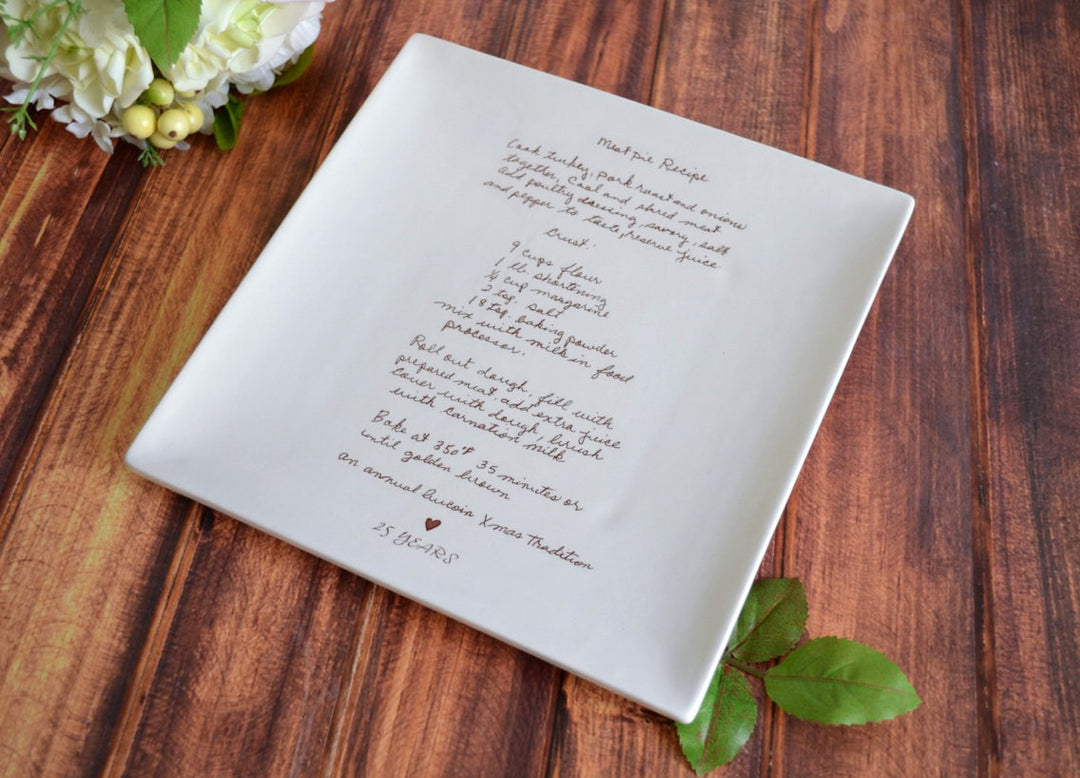 Meatpie Recipe
Cook turkey, pork roast and onions
together, cool and shred meat
add poultry dressing, savory, salt
and pepper to taste, reserve juice.
Crust:
9 cups flour
1 lb. shortening
¼ cup margarine
2 tsp. salt
18 tsp. baking powder
mix with milk in food
processor.
Roll out dough, fill with
prepared meat add extra juice
cover with dough, brush
with carnation milk
Bake at 350°F 35 minutes or
until golden brown
an annual Xmas Tradition
25 YEARS